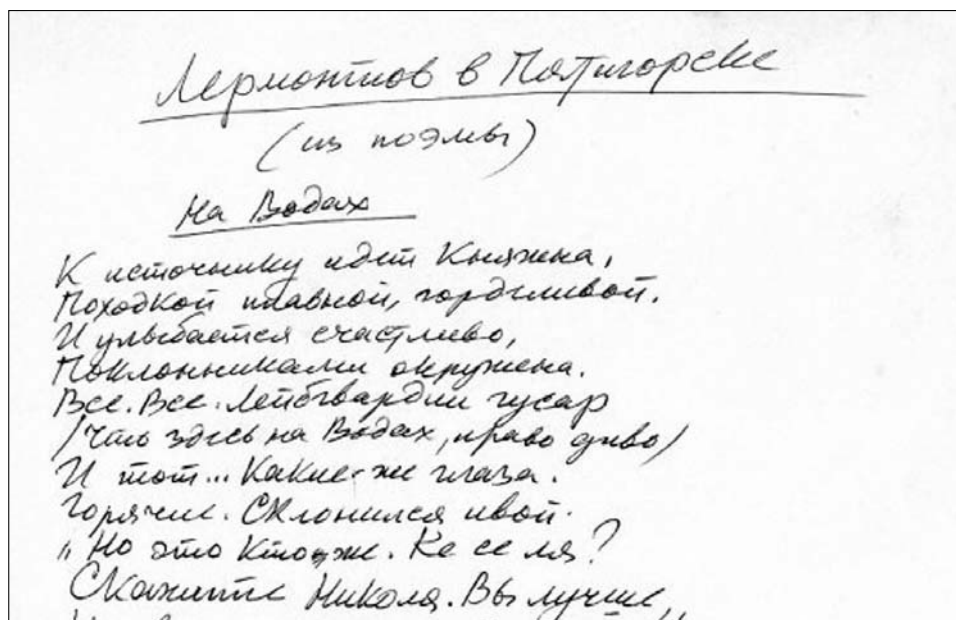 Лермонтов в Пятигорске
(из поэмы)
На Водах
К источнику идет Княжна,
Походкой плавной, горделивой.
И улыбается счастливо,
Поклонниками окружена.
Все. Все. Лейбгвардии гусар
/Что здесь на Водах, право диво/
И тот... Какие-же глаза.
Горячие. Склонился ивой.
„Но это кто-ж. Ке се ля?
Скажите Николя. Вы лучше,